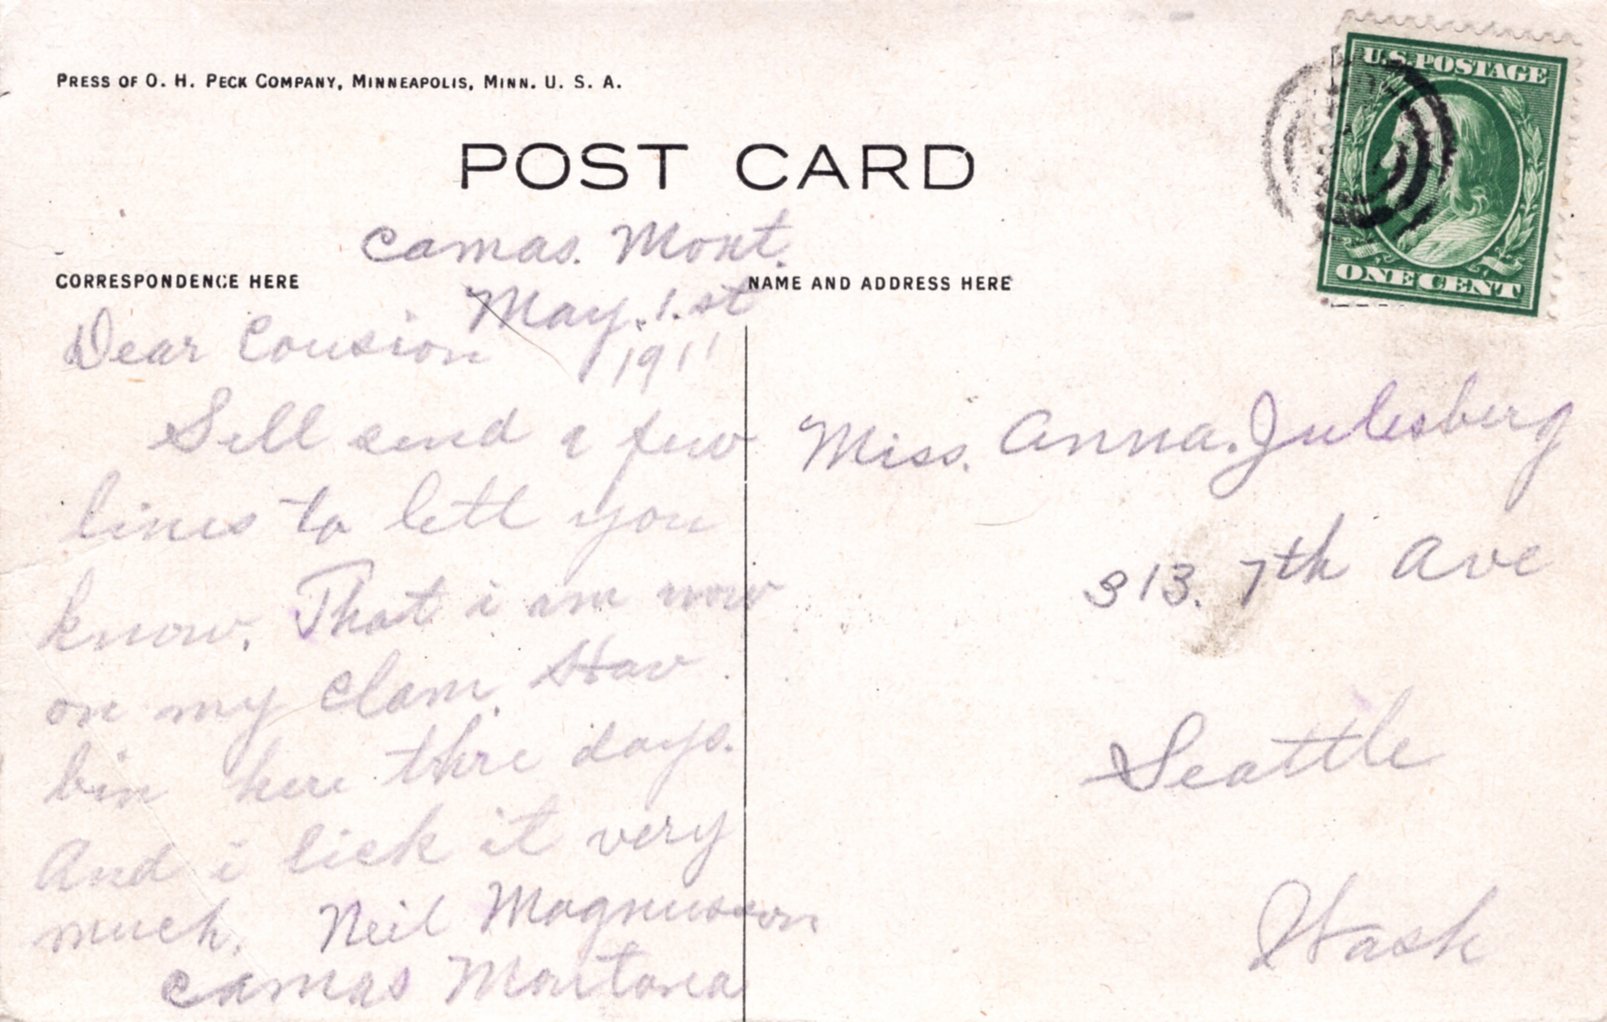 PRESS OF O. H. PECK COMPANY, MINNEAPOLIS, MINN. U. S. A.
U.S. POSTAGE
ONE CENT
POST CARD
Camas. Mont.
CORRESPONDENCE HERE
NAME AND ADDRESS HERE
May. 1. st
1911
Dear Cousion
Sill send a few
lines to lett you
know. That i am now
on my clam. Hav
bin here thre days.
And i lick it very
much. Neil Magnusson
Camas Montana
Miss. Anna. Julesberg
313. 7th Ave
Seattle
Wash